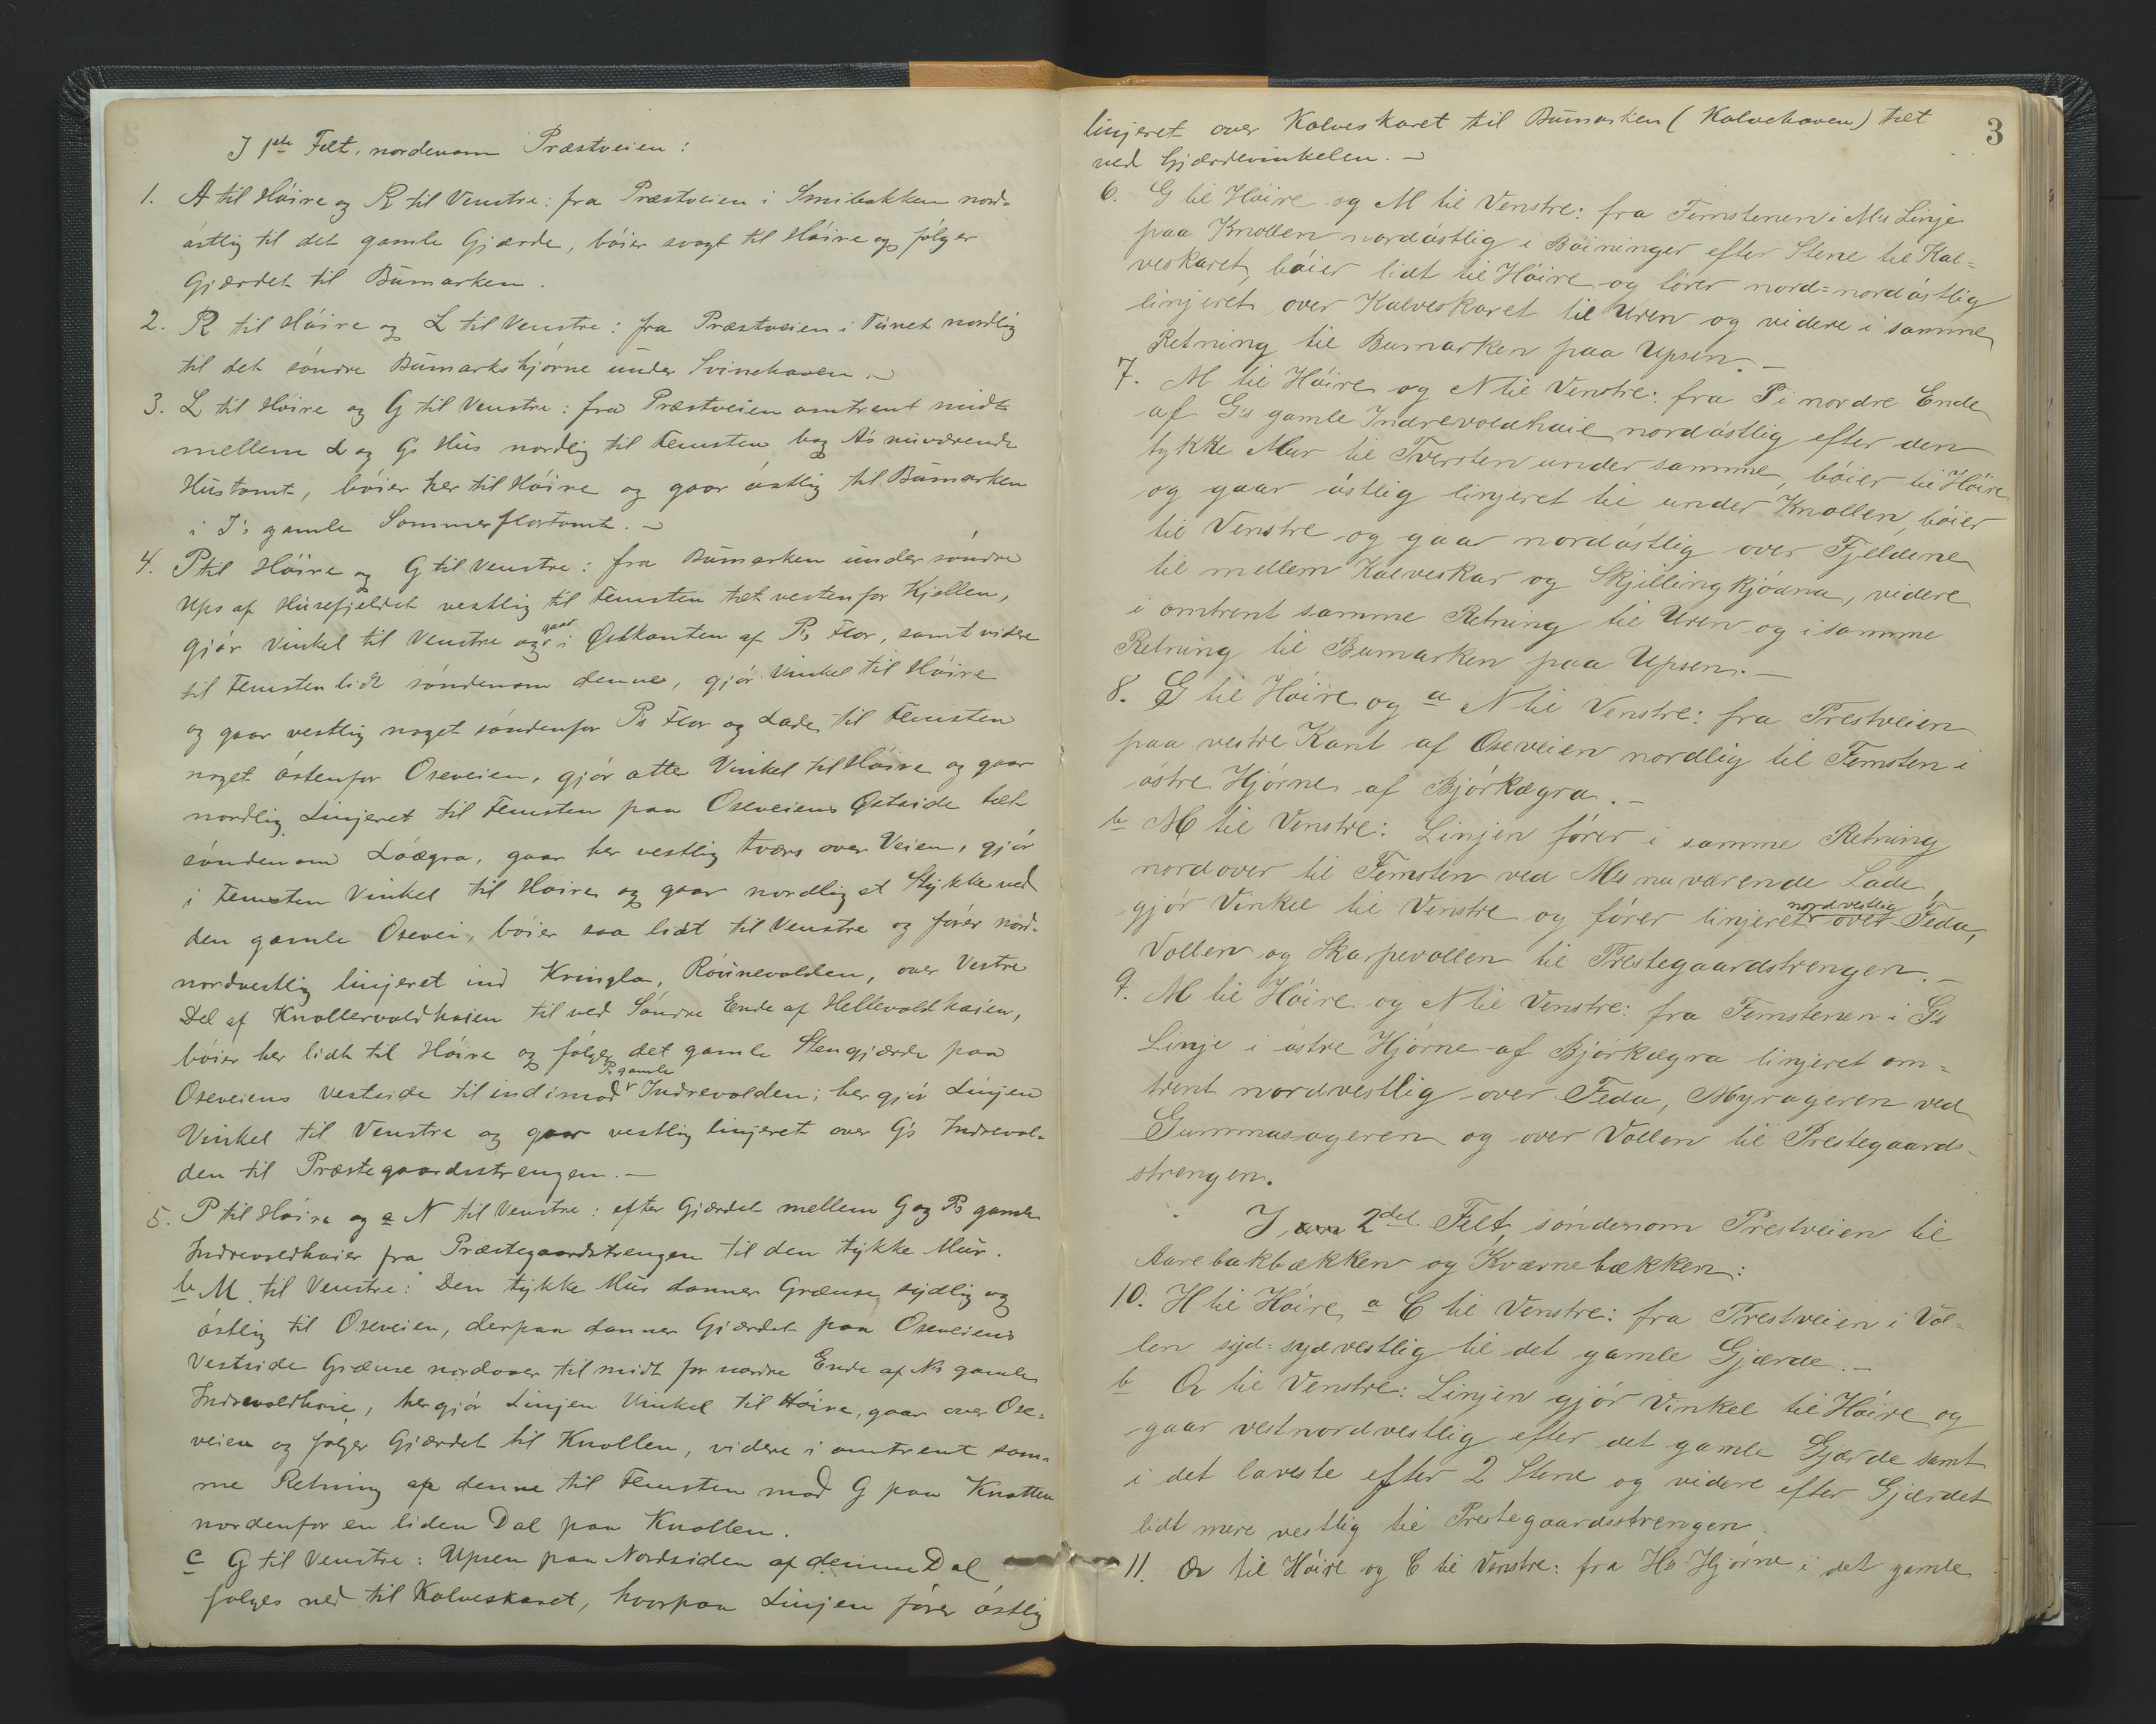 I 1ste Felt, nordenom Præstveien:
1. A til Höire og R til Venstre: fra Præstveien i Smibakken nord-
östlig til det gamle Gjærde, böier svagt til Höire og fölger
Gjærdet til Bumarken.
2. R til Höire og L til Venstre: fra Præstveien i Tunet nordlig
til det söndre Bumarkshjörne under Svinehaven. –
3. L til Höire og G til Venstre: fra Præstveien omtrent midt
mellem L og G's Hus nordlig til Temsten bag A's nuværende
Hustomt, böier her til Höire og gaar östlig til Bumarken
i I's gamle Sommerflortomt. –
4. P til Höire og G til Venstre: fra Bumarken under söndre
Ups af Husefjeldet vestlig til Temsten tæt vestenfor Kjellen,
gjör Vinkel til Venstre og gaar i Östkanten af P's Flor, samt videre
til Temsten lidt söndenom denne, gjör Vinkel til Höire
og gaar vestlig noget söndenfor P's Flor og Lade til Temsten
noget östenfor Oseveien, gjör atter Vinkel til Höire og gaar
nordlig linjeret til Temsten paa Oseveiens Östside tæt
söndenom Löægra, gaar her vestlig tværs over Veien, gjör
i Temsten Vinkel til Höire og gaar nordlig et Stykke ved
den gamle Osevei, böier saa lidt til Venstre og förer nord-
nordvestlig linjeret ind Kringla, Röünevolden, over Vestre
Del af Knollervoldhaien til ved Söndre Ende af Hellevoldhaien,
böier her lidt til Höire og fölger det gamle Stengjærde paa
Oseveiens Vestside til ind imod P's gamle Indrevolden; her gjör Linjen
Vinkel til Venstre og gaar vestlig linjeret over G's Indrevol-
den til Præstegaardsstrengen. –
5. P til Höire og a N til Venstre: efter Gjærdet mellem G og P's gamle
Indrevoldhaier fra Præstegaardstrengen til den tykke Mur.
b M til Venstre: Den tykke Mur danner Grænse sydlig og
östlig til Oseveien, derpaa danner Gjærdet paa Oseveiens
Vestside Grænse nordover til midt for nordre Ende af N's gamle
Indrevoldhaie, her gjör Linjen Vinkel til Höire, gaar over Ose-
veien og fölger Gjærdet til Knollen, videre i omtrent sam-
me Retning af denne til Temsten mod G paa Knatten
nordenfor en liden Dal paa Knollen.
c G til Venstre: Upsen paa Nordsiden af denne Dal
fölges ned til Kalveskaret, hvorpaa Linjen förer östlig
3
linjeret over Kalveskaret til Bumarken (Kalvehaven) tæt
ved Gjærdevinkelen. –
6. G til Höire og M til Venstre: fra Temstenen i M's Linje
paa Knollen nordöstlig i Böininger efter Stene til Kal-
veskaret, böier lidt til Höire og förer nord-nordöstlig
linjeret over Kalveskaret til Uren og videre i samme
Retning til Bumarken paa Upsen. –
7. M til Höire og N til Venstre: fra P i nordre Ende
af G's gamle Indrevoldhaie nordöstlig efter den
tykke Mur til Tversten under samme, böier til Höire
og gaar östlig linjeret til under Knollen, böier
til Venstre og gaar nordöstlig over Fjeldene
til mellem Kalveskar og Skjillingkjödna, videre
i omtrent samme Retning til Uren og i samme
Retning til Bumarken paa Upsen. –
8. G til Höire og a N til Venstre: fra Prestveien
paa vestre Kant af Oseveien nordlig til Temsten i
östre Hjörne af Björkægra. –
b M til Venstre: Linjen förer i samme Retning
nordover til Temsten ved M's nuværende Lade,
gjör Vinkel til Venstre og förer linjeret nordvestlig over Feda,
Vollen og Skarpevollen til Prestegaardstrengen. –
9. M til Höire og N til Venstre: fra Temstenen i G's
Linje i östre Hjörne af Björkægra linjeret om-
trent nordvestlig over Feda, Myrageren ved
Gummasageren og over Vollen til Prestegaards-
strengen.
I 2det Felt, söndenom Prestveien til
Aarebakbækken og Kværnebækken:
10. H til Höire, a C til Venstre: fra Prestveien i Vol-
len syd-sydvestlig til det gamle Gjærde. –
b Q til Venstre: Linjen gjör Vinkel til Höire og
gaar vestnordvestlig efter det gamle Gjærde samt
i det laveste efter 2 Stene og videre efter Gjærdet
lidt mere vestlig til Prestegaardsstrengen.
11. Q til Höire og C til Venstre: fra H's Hjörne i det gamle